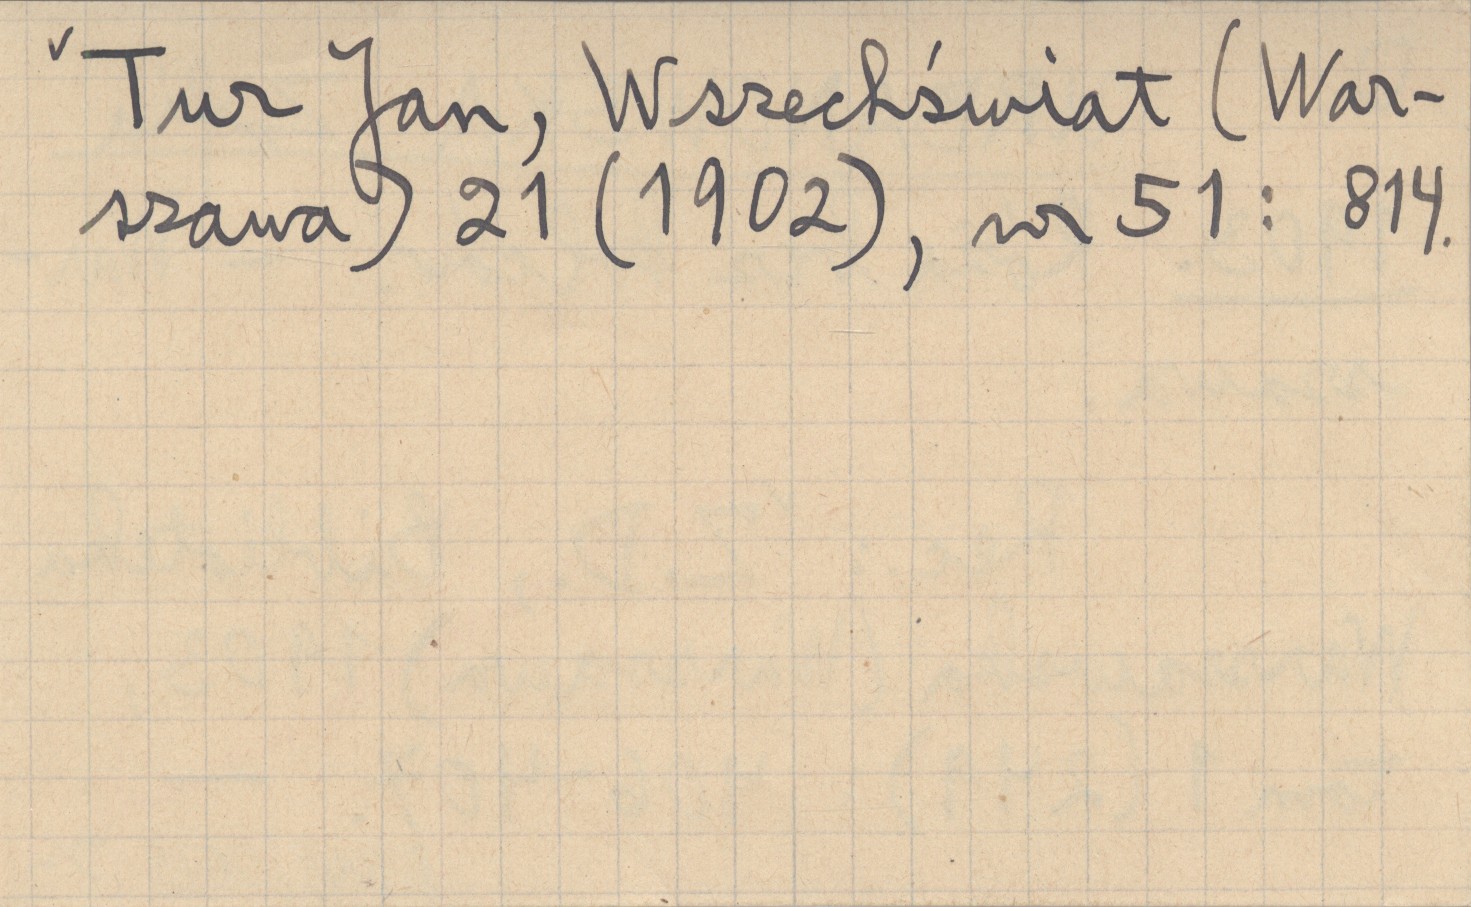 ✓ Tur Jan, Wszechświat (War-
szawa) 21 (1902), nr 51: 814.